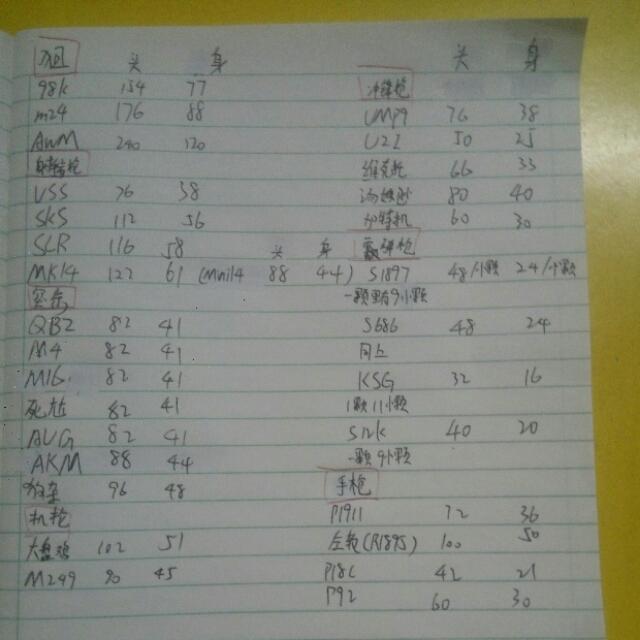 狙 头 身
98k 154 77
m24 176 88
AWM 240 120
VSS 76 38
SKS 112 56
SLR 116 58 头 身
MK14 122 61 (mni14 88 44)
QBZ 82 41
M4 82 41
M16 82 41
82 41
AUG 82 41
AKM 88 44
96 48
机枪
大盘鸡 102 51
M249 90 45
头 身
冲锋枪
UMP9 76 38
UZI 50 25
维克托 66 33
汤姆逊 80 40
60 30
霰弹枪
S1897 48/小颗 24/小颗
一颗 9小颗
S686 48 24
同上
KSG 32 16
1颗11小颗
S12k 40 20
一颗9小颗
手枪
P1911 72 36
左轮(R1895) 100 50
P18C 42 21
P92 60 30